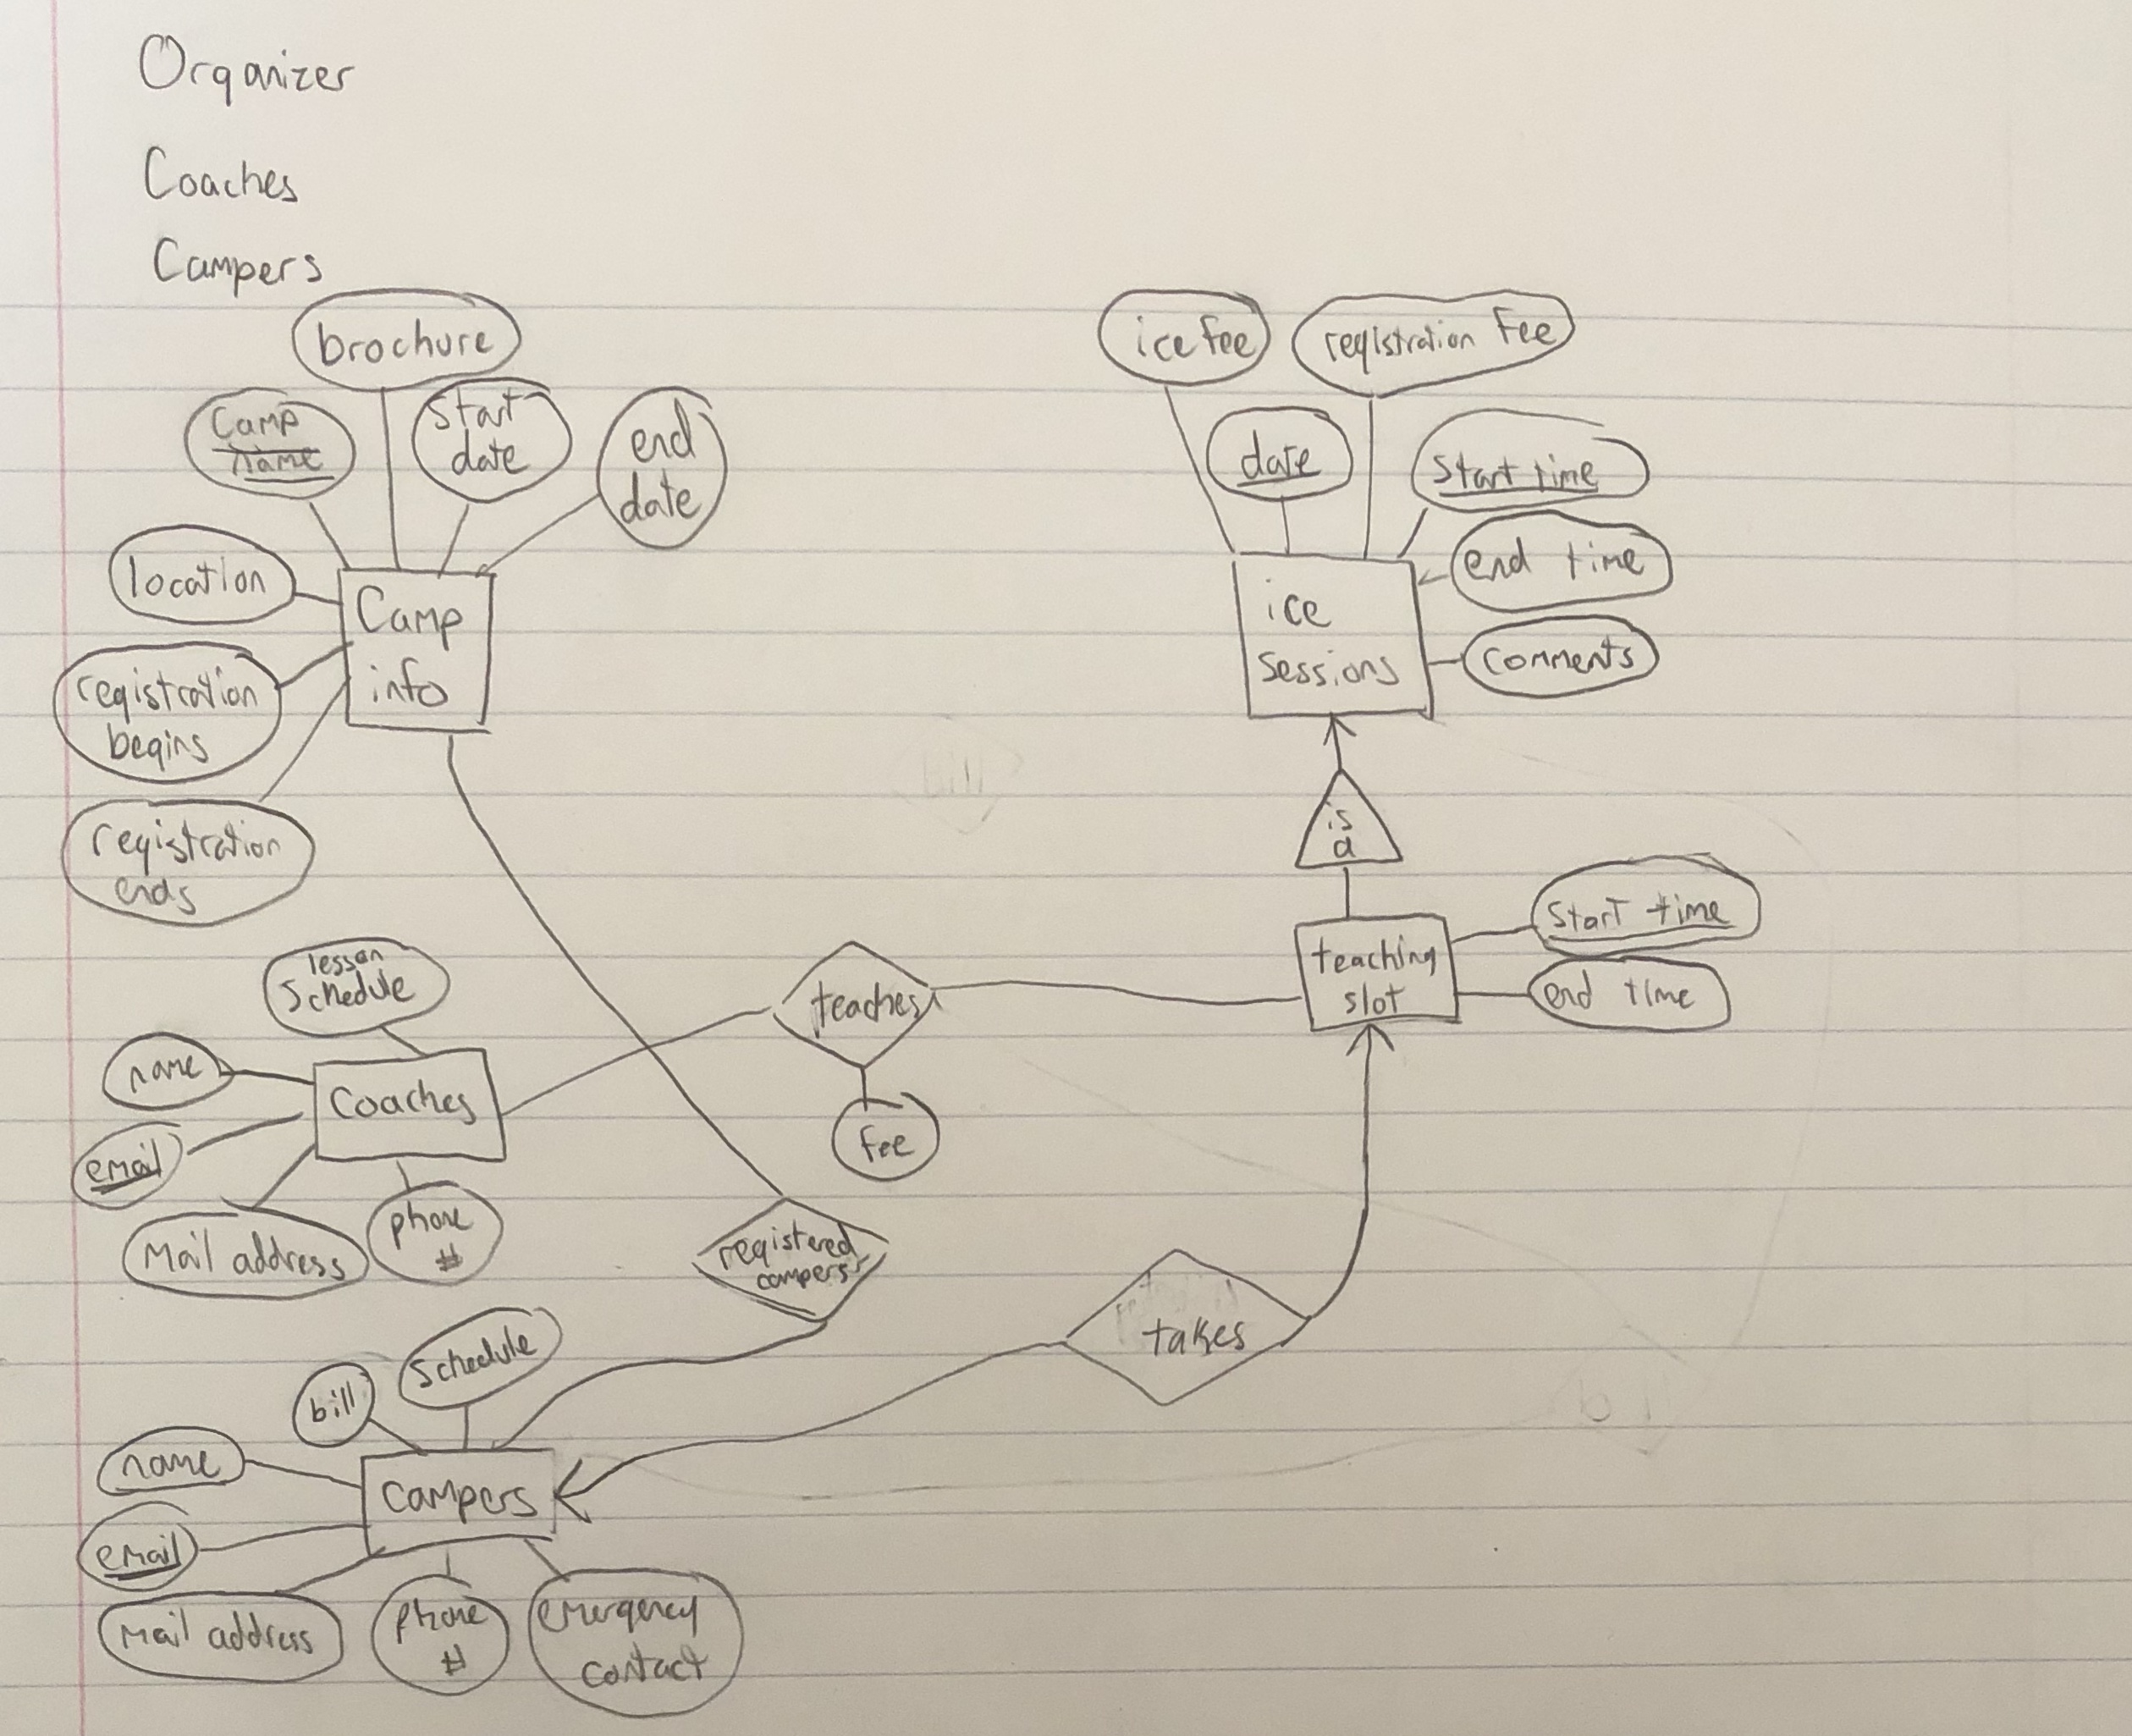 Organizer
Coaches
Campers
brochure
Camp
name
start
date
end
date
location
registration
begins
registration
ends
Camp
info
ice fee
registration Fee
date
start time
end time
comments
ice
sessions
is
a
teaching
slot
start time
end time
lesson
Schedule
name
email
Mail address
phone
#
Coaches
teaches
Fee
registered
campers
takes
Schedule
bill
name
email
Mail address
phone
#
emergency
contact
campers